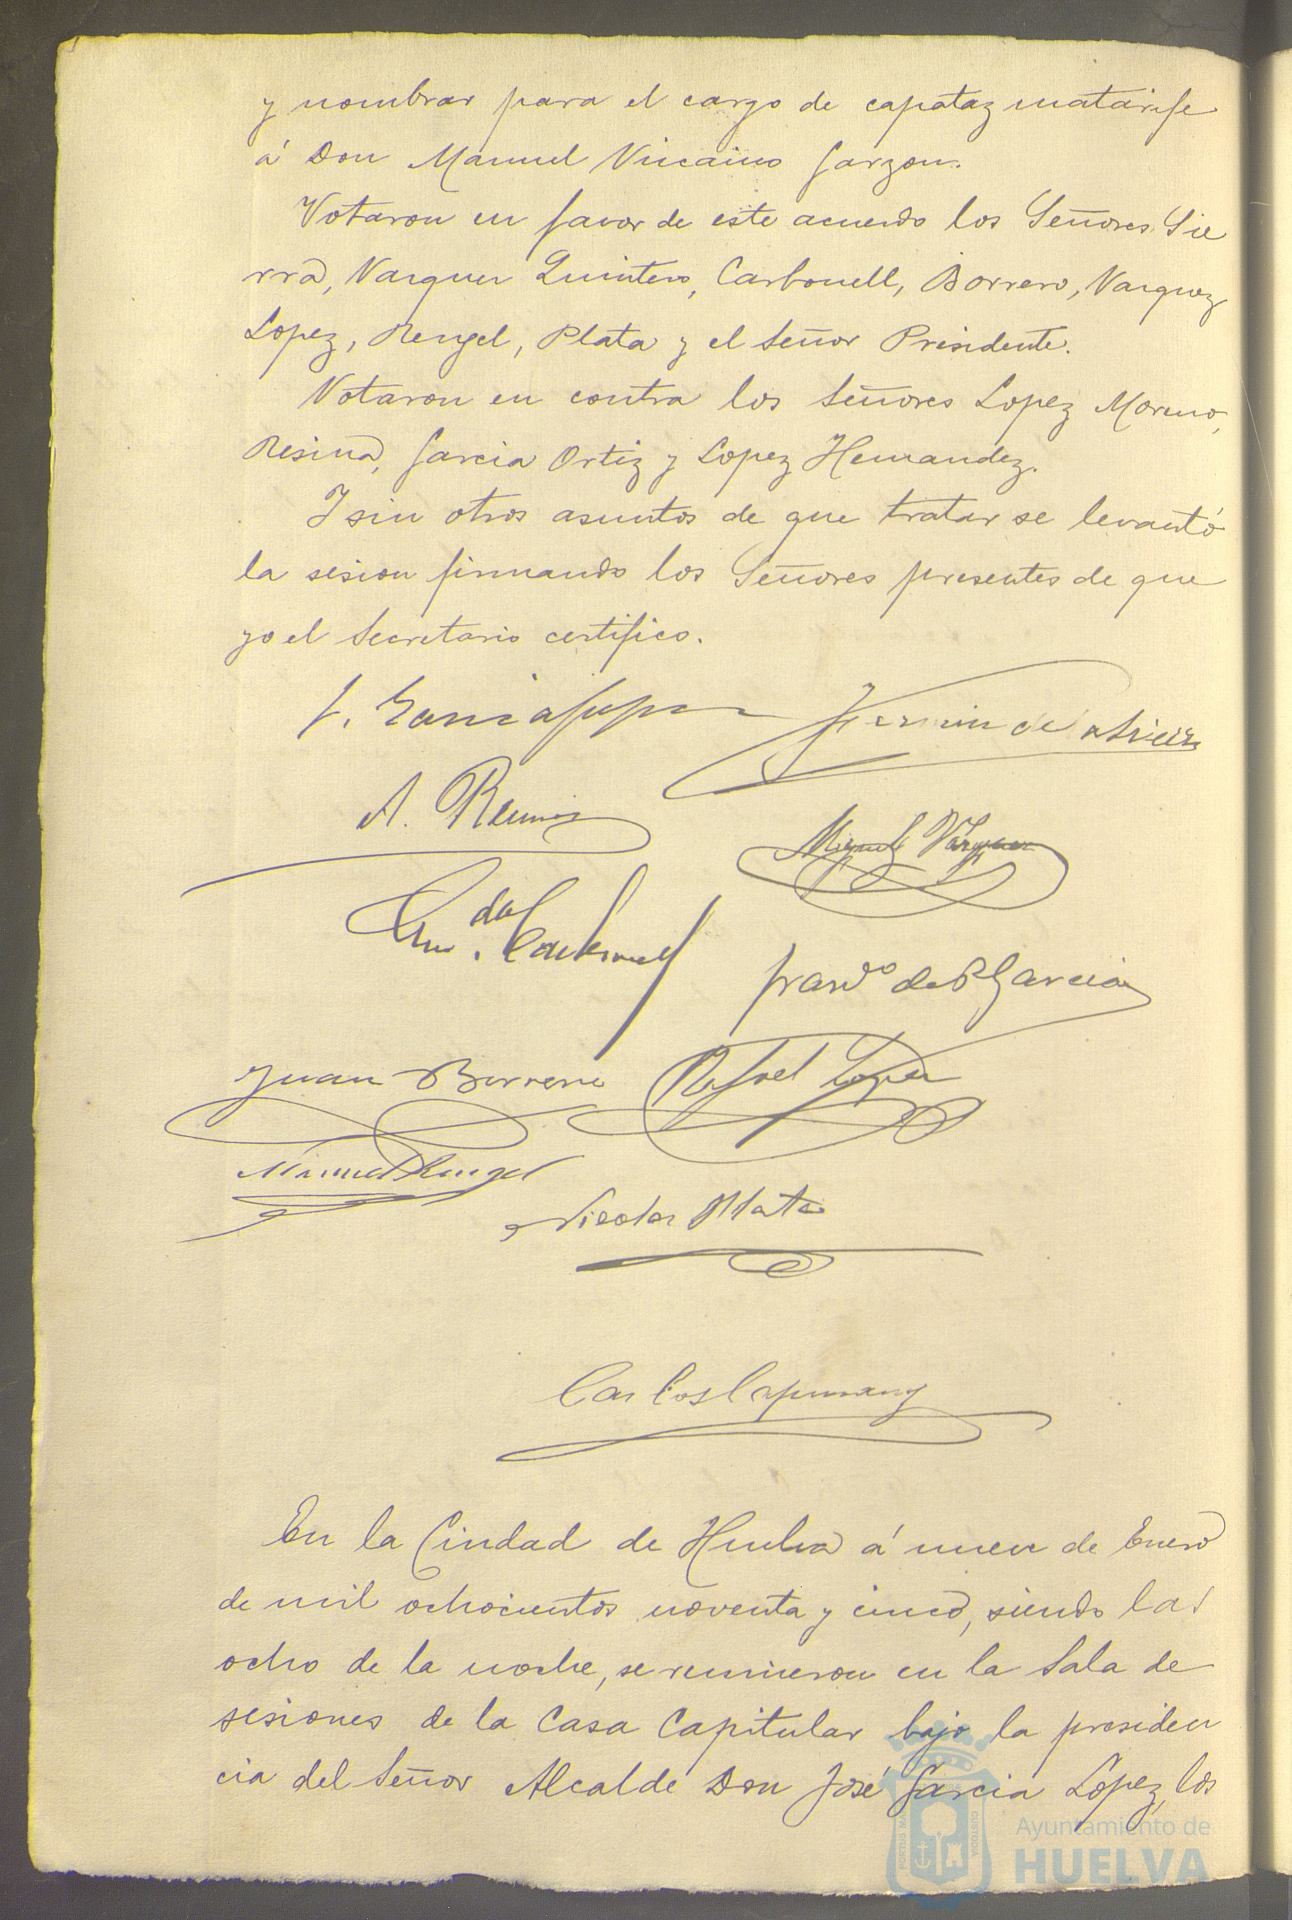 y nombrar para el cargo de capataz matarife
á Don Manuel Viscaino Garzon.
Votaron en favor de este acuerdo los Señores Sie
rra, Vazquez Quintero, Carbonell, Borrero, Vazquez
Lopez, Rengel, Plata y el Señor Presidente.
Votaron en contra los Señores Lopez Moreno,
Resina, Garcia Ortiz y Lopez Hernandez.
Y sin otros asuntos de que tratar se levantó
la sesion firmando los Señores presentes de que
yo el Secretario certifico.
J. Garcia Lopez
Fermin de
A.
Miguel Vazquez
Carbonell
Franco de P Garcia
Juan Borrero
Rafael Lopez
Manuel Rengel
Nicolas Plata
Carlos
En la Ciudad de Huelva á nueve de Enero
de mil ochocientos noventa y cinco, siendo las
ocho de la noche, se reunieron en la Sala de
sesiones de la Casa Capitular bajo la presiden
cia del Señor Alcalde Don José Garcia Lopez, los
Ayuntamiento de
HUELVA